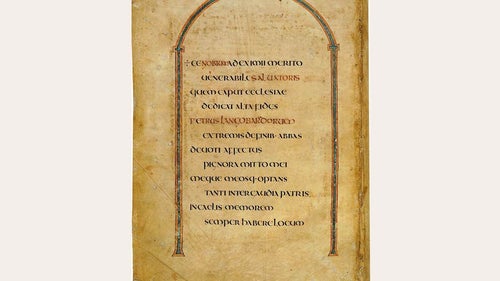 + CENOBIUM AD EXIMII MERITO
VENERABILE SALVATORIS
QUEM CAPUT ECCLESIAE
DEDICAT ALTA FIDES
PETRUS LANGOBARDORUM
EXTREMIS DE FINIB· ABBAS
DEVOTI AFFECTUS
PIGNORA MITTO MEI
MEQUE MEOSQ· OPTANS
TANTI INTER GAUDIA PATRIS
IN CAELIS MEMOREM
SEMPER HABERE LOCUM